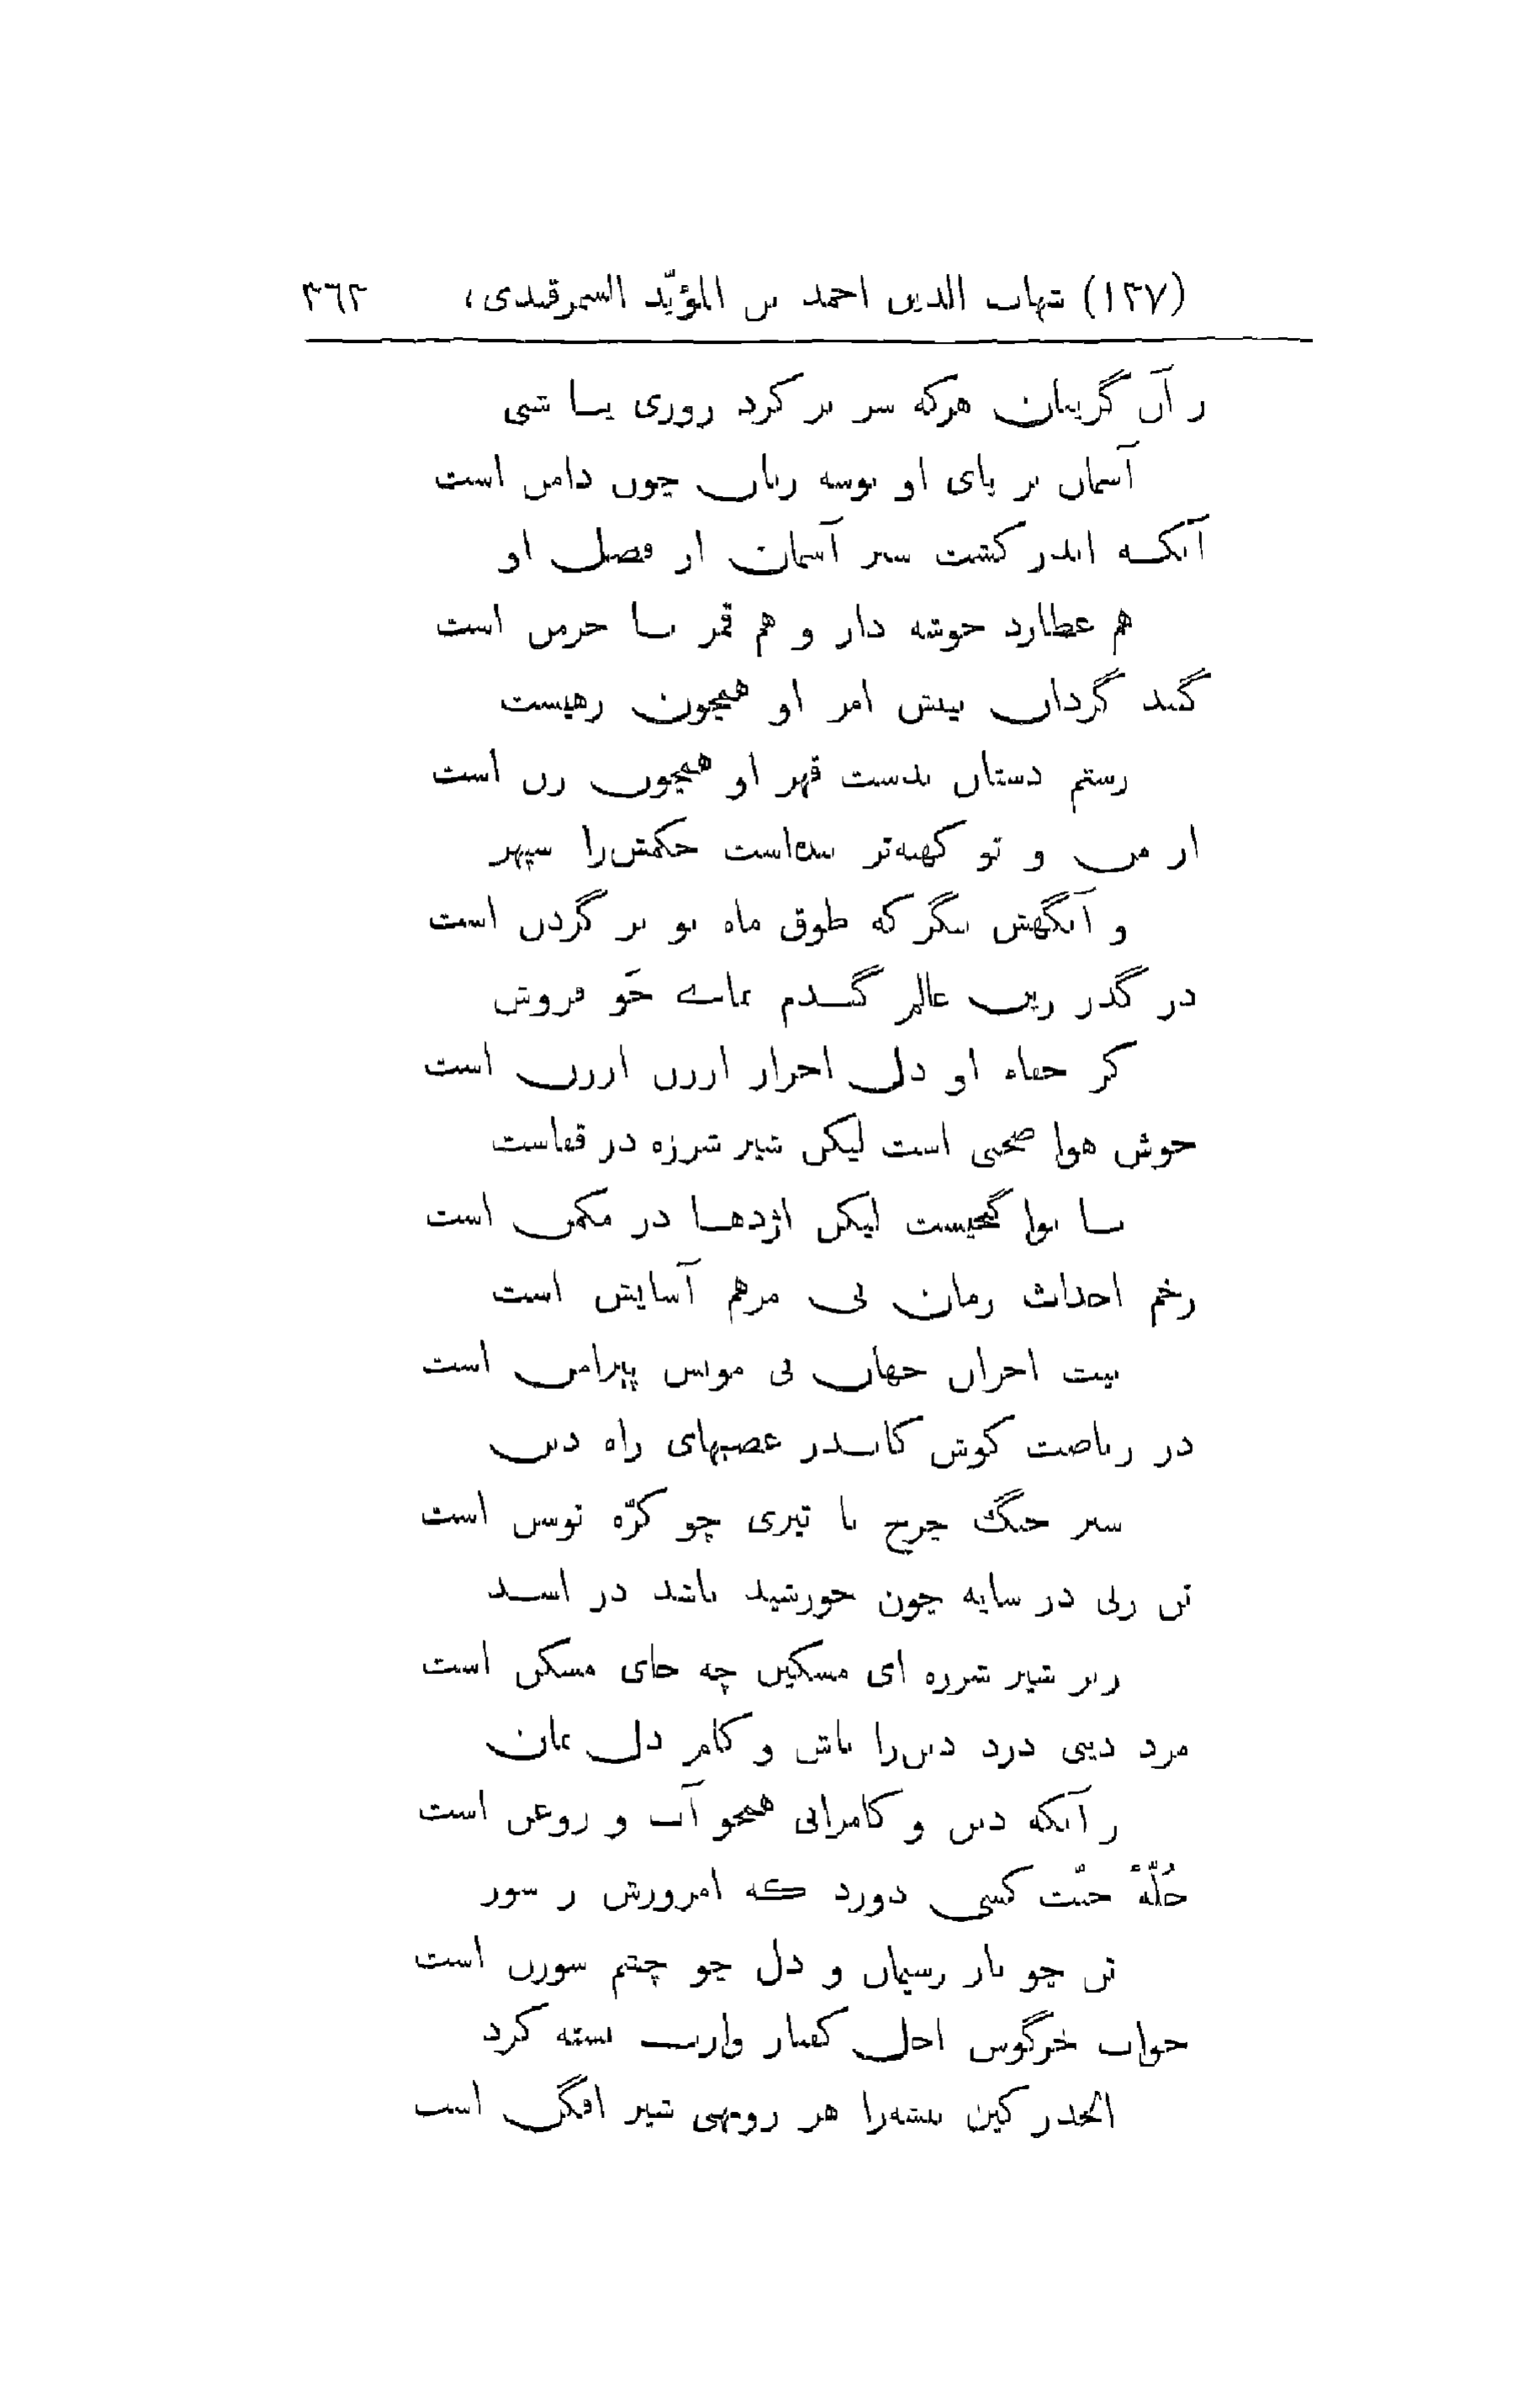 (۱۳۷) شهاب الدین احمد بن المؤیّد السمرقندی، ۳۶۳
ز آن گریبان هرکه سر بر کرد روزی یا شبی
آسمان بر پای او بوسه زنان چون دامن است
آنکه اندر کشت سبز آسمان از فضل او
هم عطارد خوشه دار و هم قمر با خرمن است
گنبد گردان بپیش امر او همچون رهیست
رستم دستان بدست قهر او همچون زن است
از من و تو کهنه‌تر بنده‌است حکمش‌را سپهر
و آنگهش بنگر که طوق ماه نو بر گردن است
در گذر زین عالم گندم نمای جَو فروش
کز جفاه او دل احرار ارزن ارزن است
خوش هوا صحنی است لیکن شیر شرزه در قفاست
با نوا گنجیست لیکن اژدها در مکمن است
زخم احداث زمان بی مرهم آسایش است
بیت احزان جهان بی مونس پیرامن است
در ریاضت کوش کاندر عصبهای راه دین
سبز خنگ چرخ با تیزی چو کرّه توسن است
تن زنی در سایه چون خورشید باشد در اسد
زیر شیر شرزه ای مسکین چه جای مسکن است
مرد دینی درد دین‌را باش و کام دل ممان
ز آنکه دین و کامرانی همچو آب و روغن است
حُلّهٔ جنّت کسی دوزد که امروزش ز سوز
تن چو تار رسیمان و دل چو چشم سوزن است
خواب خرگوش اجل کفتار وارت بسته کرد
الحذر کین بیشه‌را هر روبهی شیر افگن است